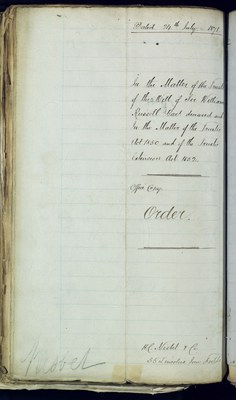 Dated 24th July 1871
In the Matter of the Trusts
of the Will of Sir William
Russell Bart deceased and
In the Matter of the Trustee
Act 1850 and of the Trustee
Extension Act 1852.
Office Copy
Order.
& Co
Lincolns Inn Fields